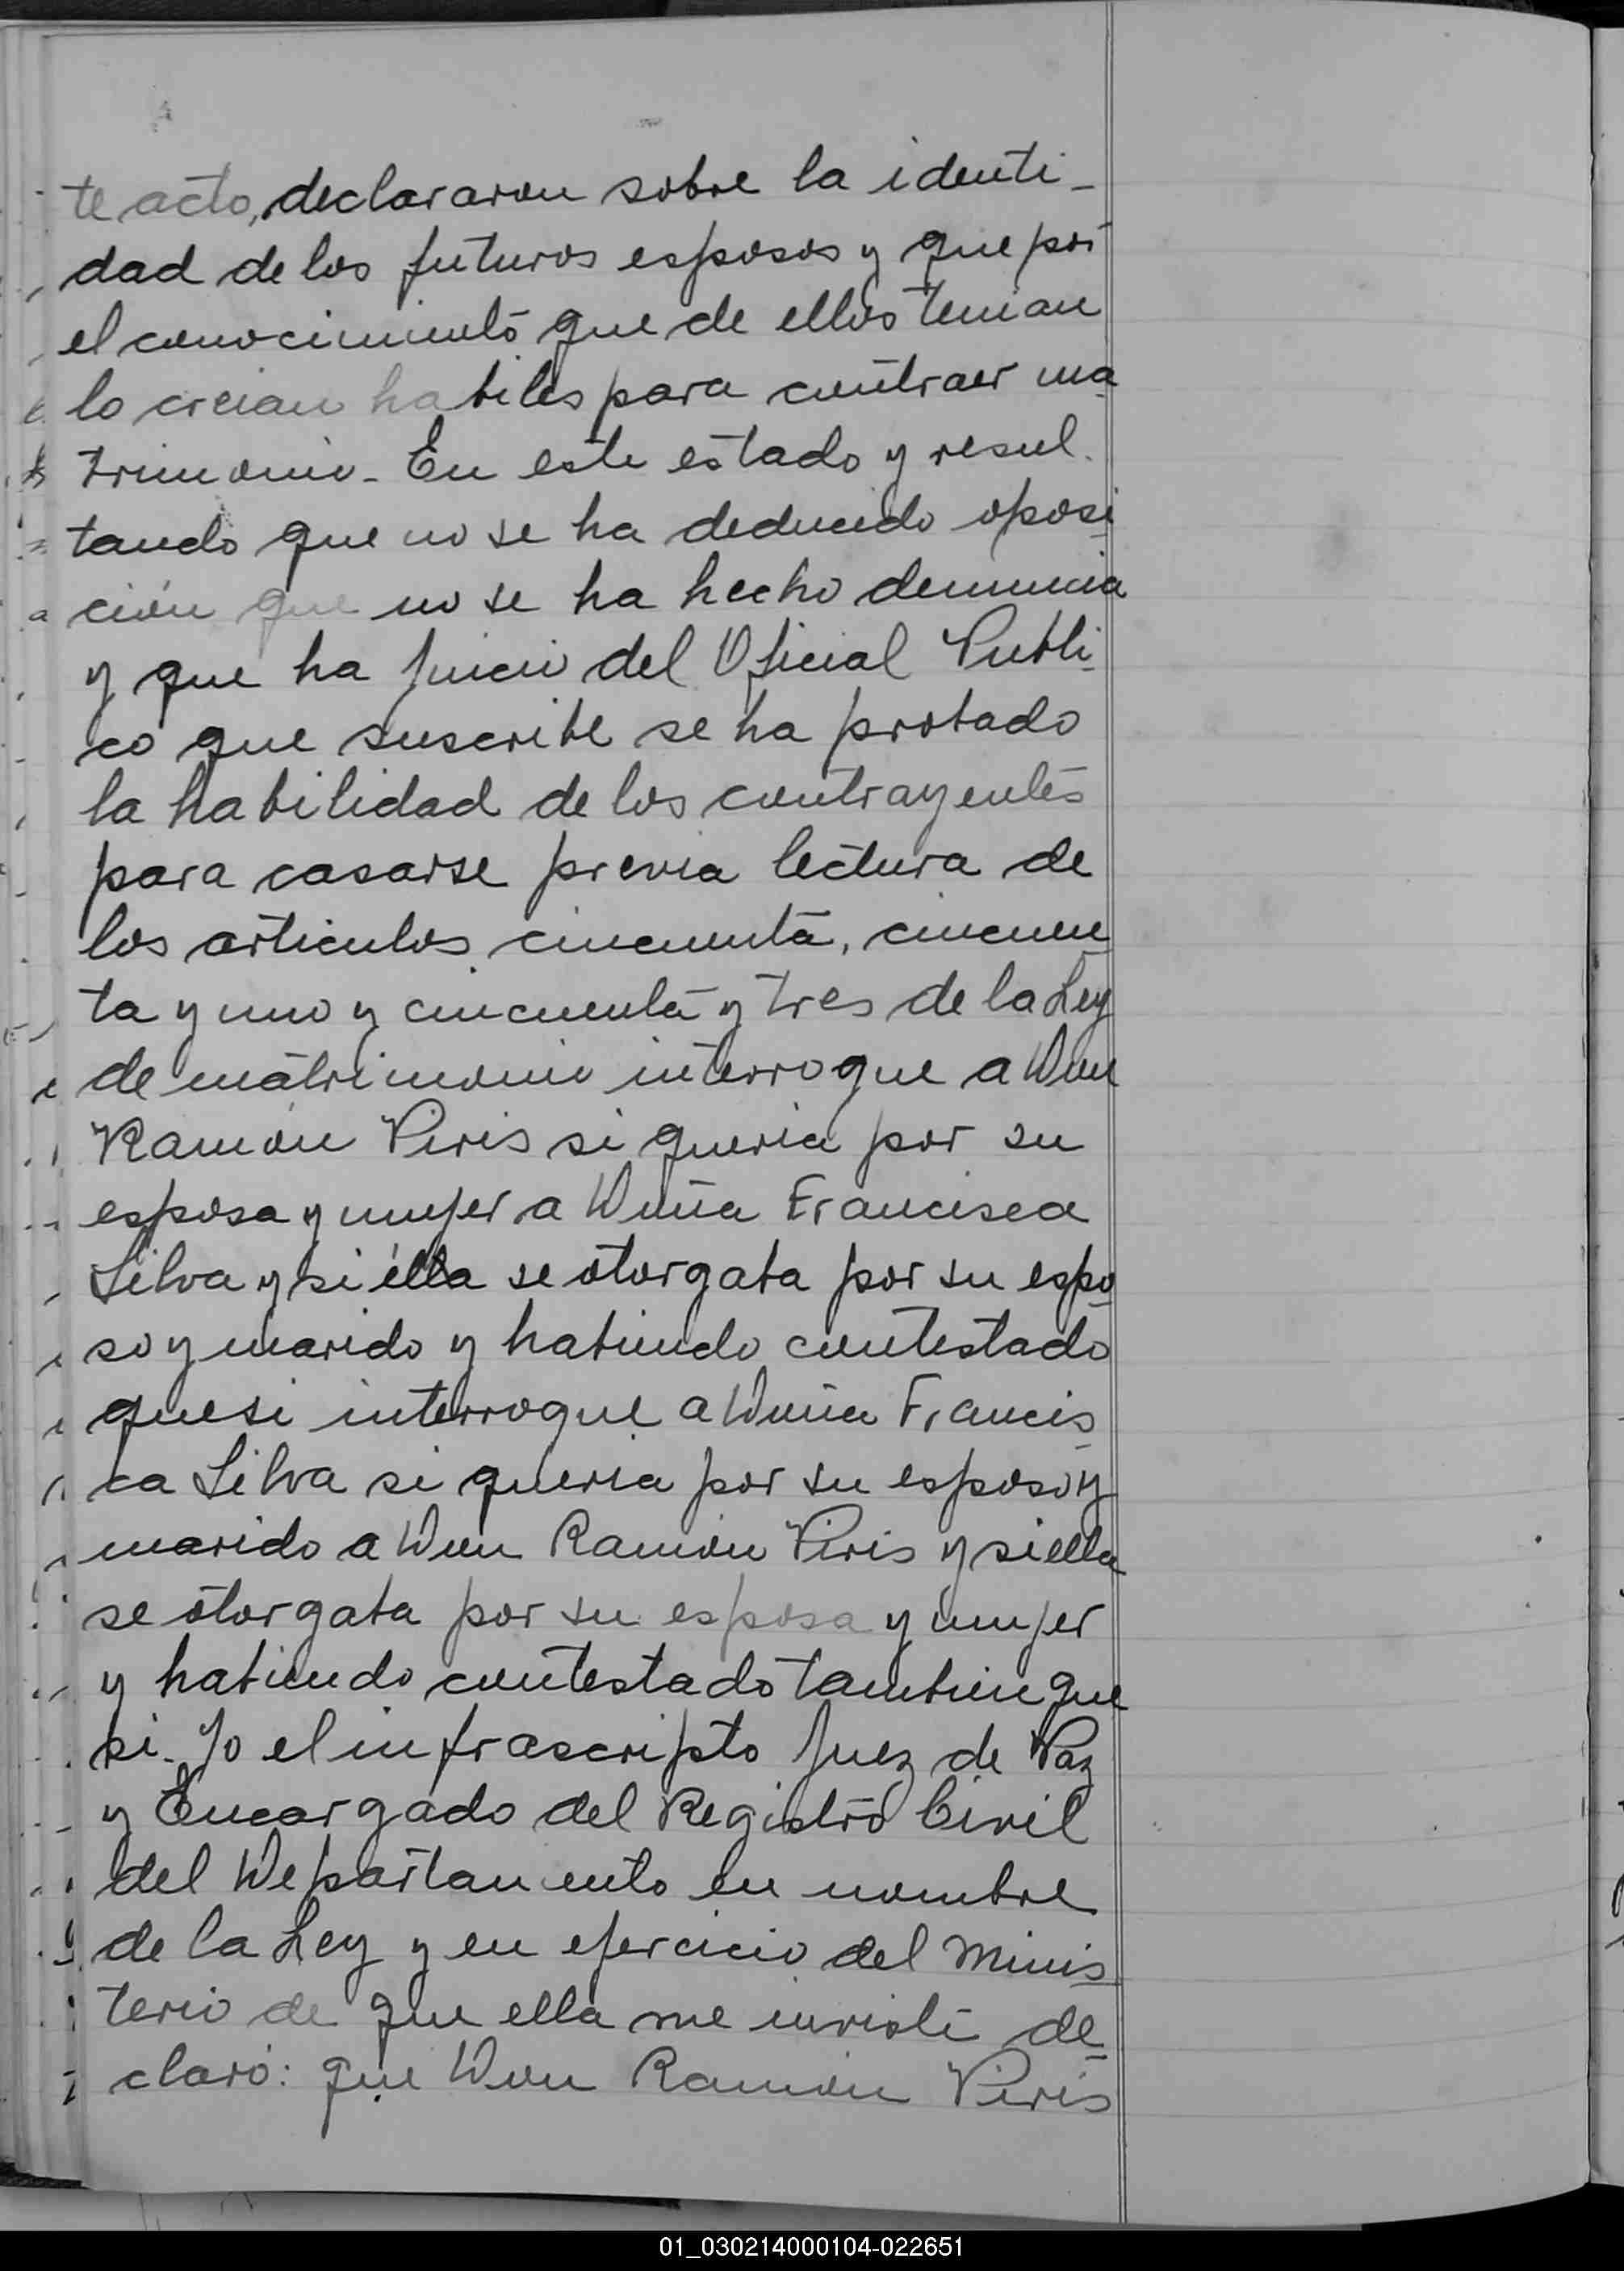 te acto, declararon sobre la identi-
dad de los futuros esposos y que por
el conocimiento que de ellos tenian
lo creian habiles para contraer ma
trimonio - En este estado y resul-
tando que no se ha deducido oposi
ción que no se ha hecho denuncia
y que ha juicio del Oficial Publi
co que suscribe se ha probado
la habilidad de los contrayentes
para casarse previa lectura de
los articulos cincuenta, cincuen
ta y uno y cincuenta y tres de la Ley
de matrimonio interrogue a Don
Ramón Piris si queria por su
esposa y mujer a Doña Francisca
Silva y si élla se otorgaba por su espo
so y marido y habiendo contestado
que si interrogue a Doña Francis
ca Silva si queria por su esposo y
marido a Don Ramón Piris y si ella
se otorgaba por su esposa y mujer
y habiendo contestado tambien que
si. Yo el infrascripto Juez de Paz
y Encargado del Registro Civil
del Departamento en nombre
de la Ley y en ejercicio del Minis
terio de que ella me inviste de
claró: que Don Ramón Piris
01_030214000104-022651